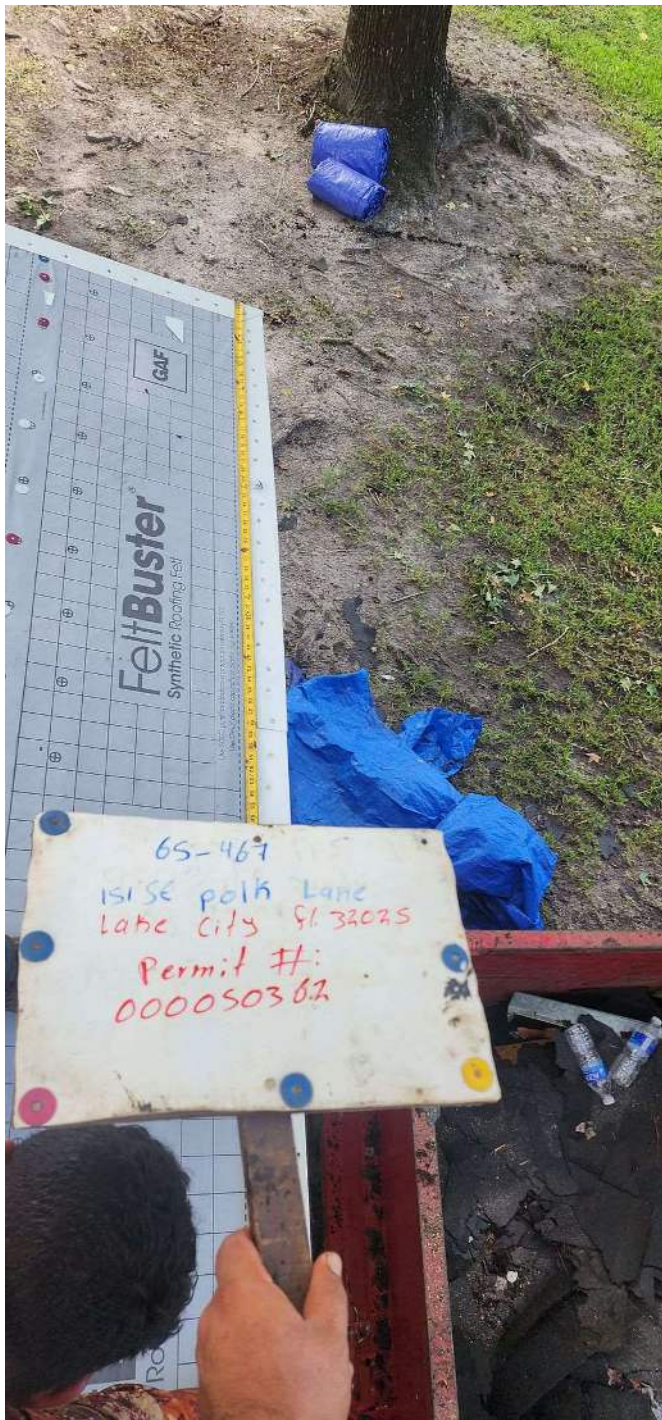 GAF
FeltBuster®
Synthetic Roofing Felt
65-467
151 SE polk Lane
Lake City fl. 32025
Permit #:
000050362
Ro